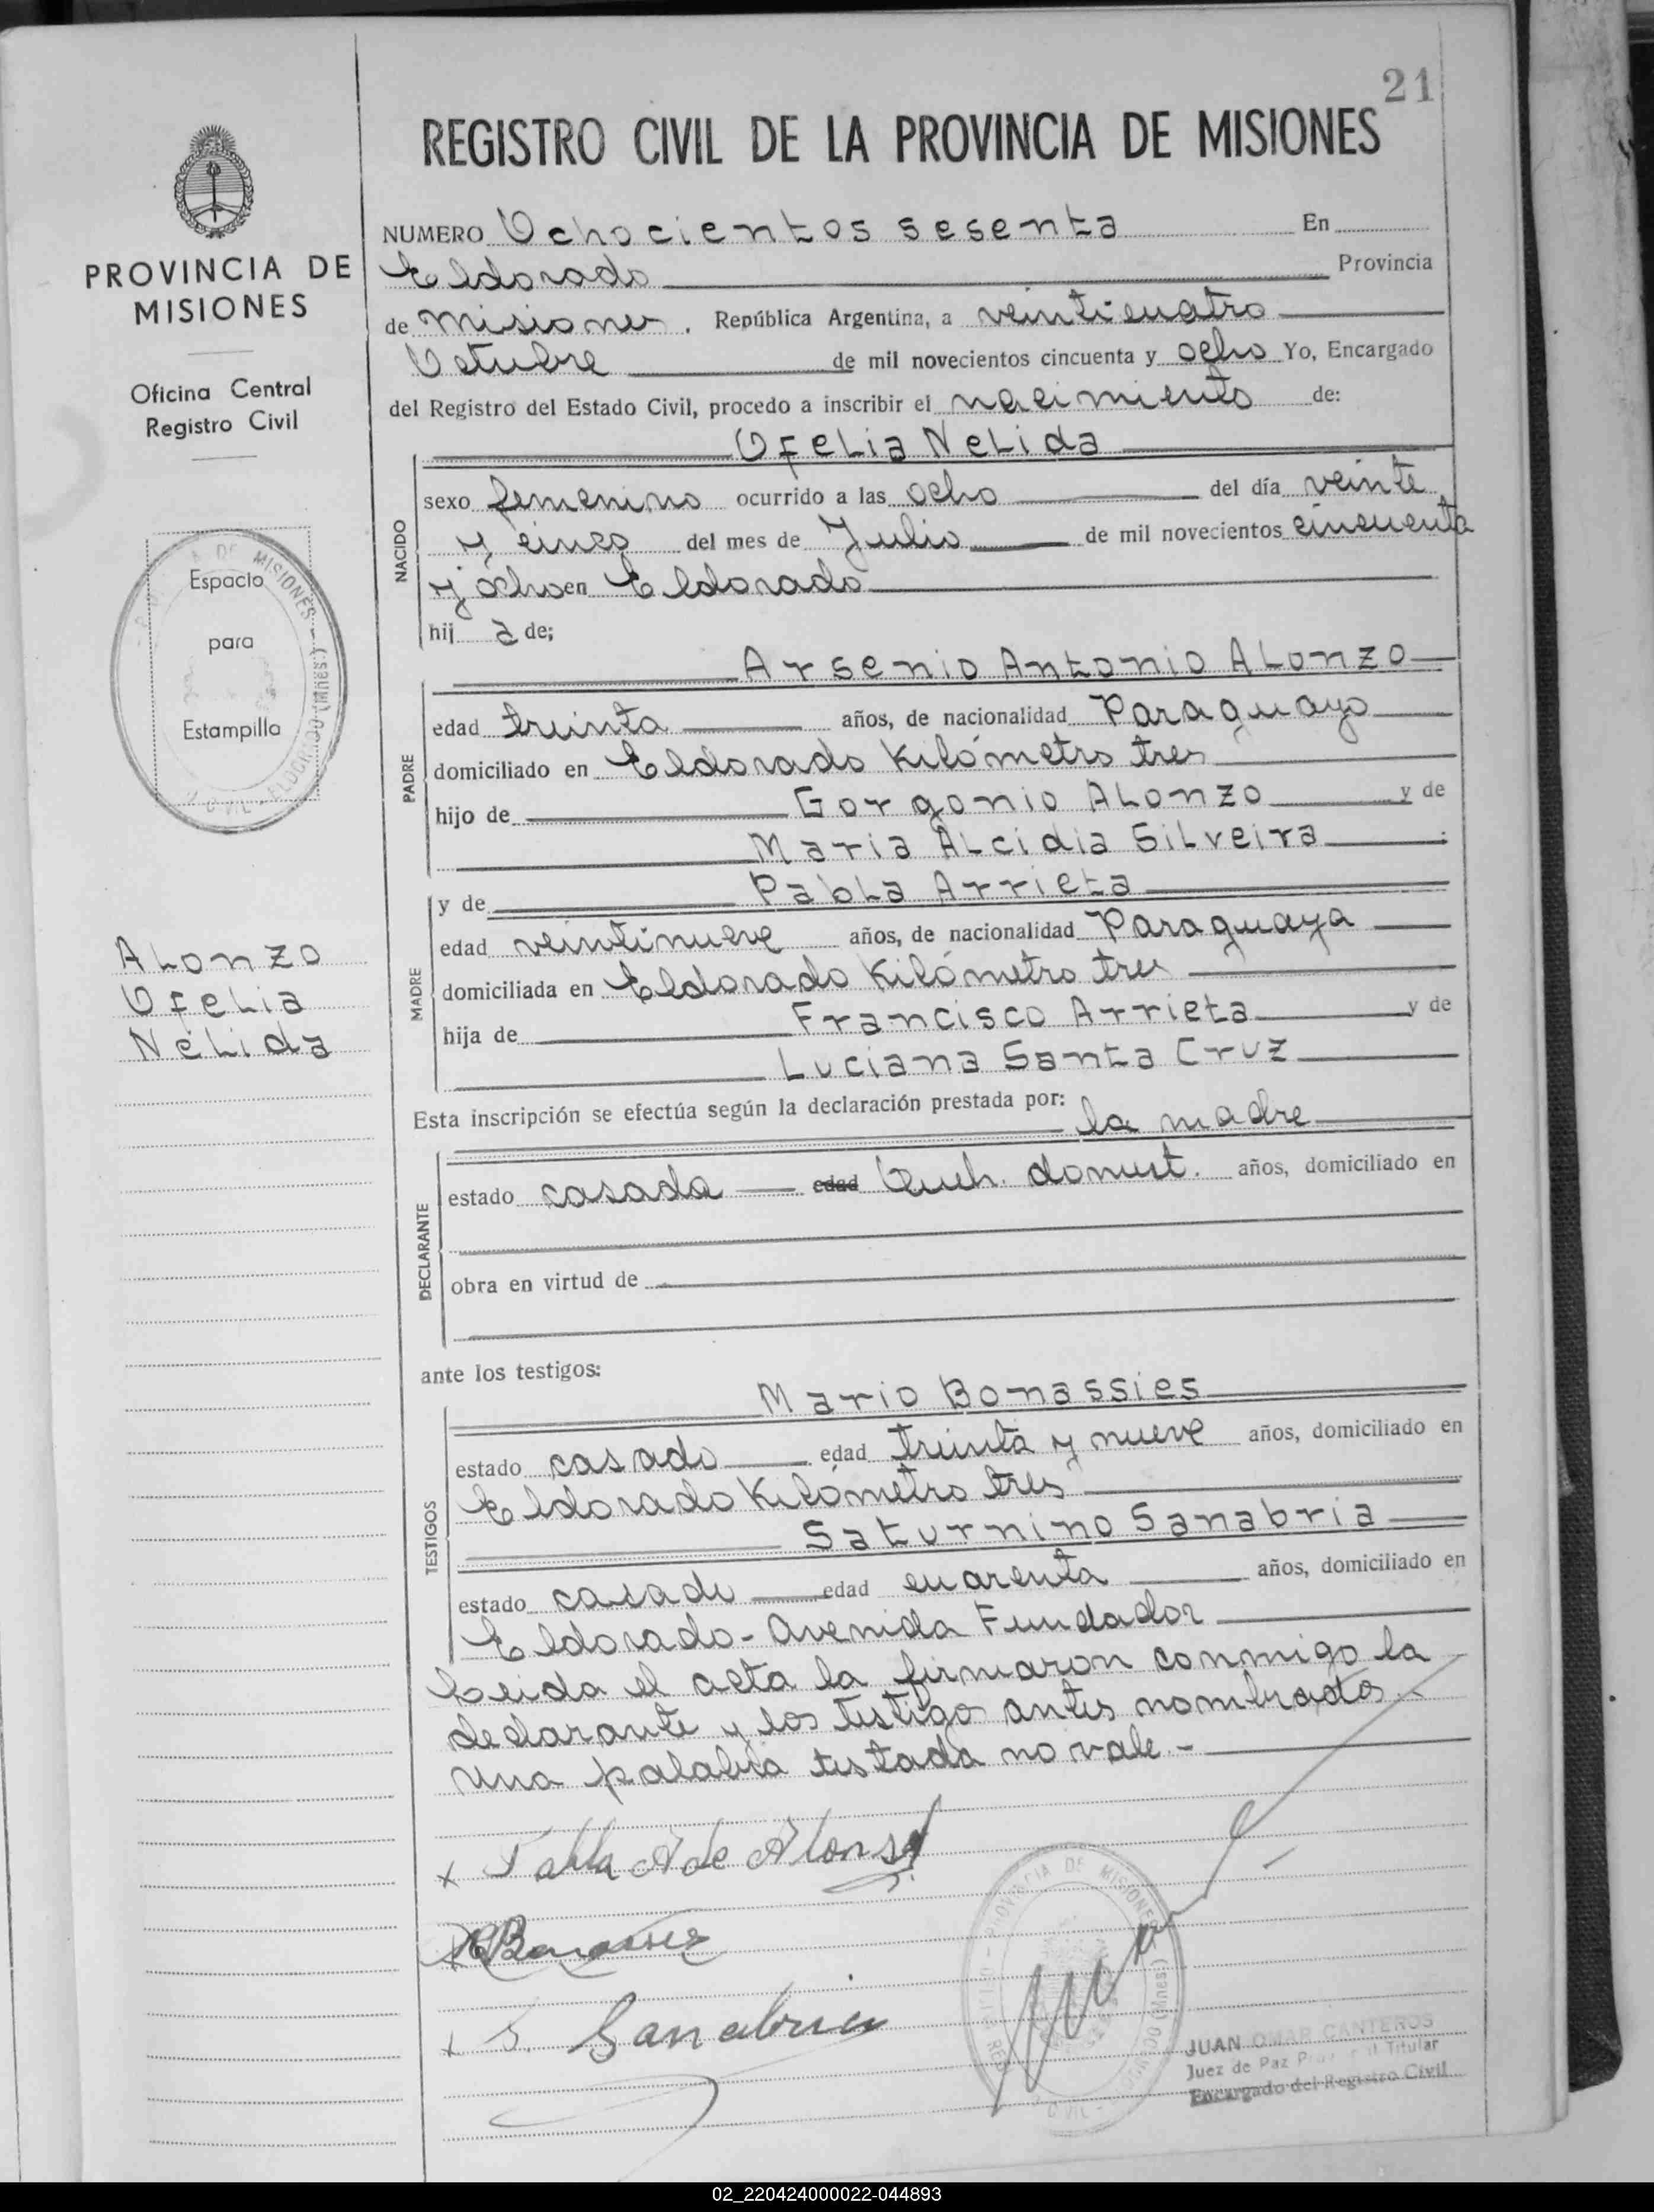 21
REGISTRO CIVIL DE LA PROVINCIA DE MISIONES
PROVINCIA DE
MISIONES
Oficina Central
Registro Civil
Espacio
para
Estampilla
Alonzo
Ofelia
Nélida
NUMERO Ochocientos sesenta En
Eldorado Provincia
de Misiones. República Argentina, a veinticuatro
Octubre de mil novecientos cincuenta y ocho Yo, Encargado
del Registro del Estado Civil, procedo a inscribir el nacimiento de:
Ofelia Nelida
NACIDO
sexo femenino ocurrido a las ocho del día veinte
y cinco del mes de Julio de mil novecientos cincuenta
y ocho en Eldorado
hij a de;
Arsenio Antonio Alonzo
PADRE
edad treinta años, de nacionalidad Paraguayo
domiciliado en Eldorado Kilómetro tres
hijo de Gorgonio Alonzo y de
Maria Alcidia Silveira
y de Pabla Arrieta
MADRE
edad veintinueve años, de nacionalidad Paraguaya
domiciliada en Eldorado Kilómetro tres
hija de Francisco Arrieta y de
Luciana Santa Cruz
Esta inscripción se efectúa según la declaración prestada por: la madre
DECLARANTE
estado casada edad años, domiciliado en
obra en virtud de
ante los testigos:
Mario Bonassies
TESTIGOS
estado casado edad treinta y nueve años, domiciliado en
Eldorado Kilómetro tres
Saturnino Sanabria
estado casado edad cuarenta años, domiciliado en
Eldorado - Avenida Fundador
Leida el acta la firmaron conmigo la
declarante y los testigo antes nombrados.-
una palabra testada no vale.-
x Pabla A de Alonso
x S. Sanabria
PROVINCIA DE MISIONES
JUAN OMAR CANTEROS
Juez de Paz Titular
Encargado del Registro Civil
02_220424000022-044893